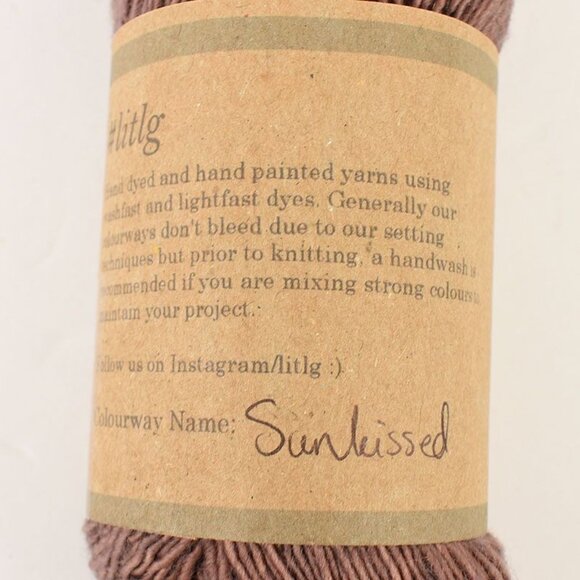 #litlg
hand dyed and hand painted yarns using
washfast and lightfast dyes. Generally our
colourways don't bleed due to our setting
techniques but prior to knitting, a handwash is
recommended if you are mixing strong colours to
maintain your project.
Follow us on Instagram/litlg :)
Colourway Name: Sunkissed